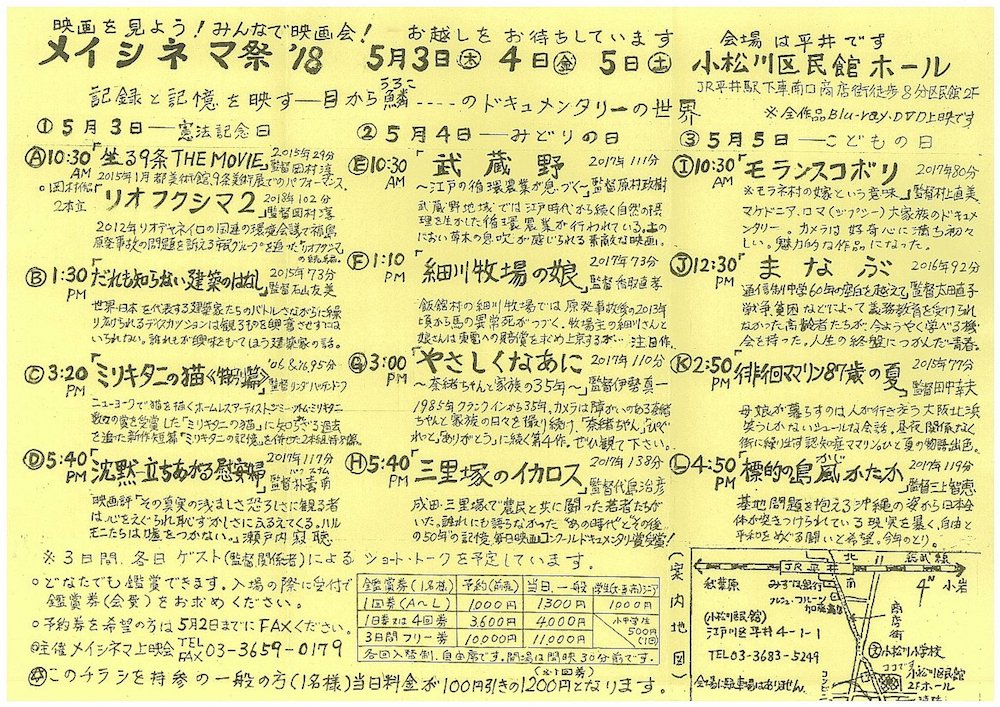 映画を見よう！みんなで映画会！ お越しをお待ちしています
メイシネマ祭'18 5月3日㊍ 4日㊎ 5日㊏
会場は平井です
小松川区民館ホール
JR平井駅下車南口商店街徒歩8分区民館2F
うろこ
記録と記憶を映す—目から鱗----のドキュメンタリーの世界
※全作品Blu-ray・DVD上映です
①5月3日—憲法記念日
Ⓐ10:30AM「坐る9条 THE MOVIE」2015年29分 監督岡村淳
2015年1月都美術館、9条美術展でのパフォーマンス。
2本立
「リオ フクシマ 2」2018年102分 監督岡村淳
2012年リオデネイロの国連の環境会議で福島
原発事故の問題を訴える市民グループを追った「リオフクシマ」の続編。
Ⓑ1:30PM「だれも知らない建築のはなし」2015年73分 監督石山友美
世界・日本を代表する建築家たちのバトルさながらに繰
り広げられるディスカッションは観るものを興奮させずには
いられない。誰れもが興味をもてほう建築家の話。
Ⓒ3:20PM「ミリキタニの猫《特別篇》」'06&'16,95分 監督リンダ・ハッテンドーフ
ニューヨークで猫を描くホームレスアーティストジミー・ツトム・ミリキタニ
数々の賞を受賞した「ミリキタニの猫」に知らざる過去
を追った新作短篇「ミリキタニの記憶」を併せた2本組特別篇。
Ⓓ5:40PM「沈黙-立ちあがる慰安婦」2017年117分 監督朴壽南
パク スナム
映画評「その真実の浅ましさ恐ろしさに観る者
は、心をえぐられ恥ずかしさにふるえてくる。ハル
モニたちは嘘をつかない。」瀬戸内寂聴
②5月4日—みどりの日
Ⓔ10:30AM「武蔵野 2017年111分
〜江戸の循環農業が息づく〜」監督原村政樹
武蔵野地域では江戸時代から続く自然の摂
理を生かした循環農業が行われている。土の
におい草木の息吹が感じられる素敵な映画。
Ⓕ1:10PM「細川牧場の娘」2017年73分 監督
飯舘村の細川牧場では原発事故後の2013年
頃から馬の異常死がつづく。牧場主の細川さんと
娘さんは東電への賠償を求め上京するが…注目作。
Ⓖ3:00PM「やさしくなあに 2017年110分
〜奈緒ちゃんと家族の35年〜」監督伊勢真一
1985年クランクインから35年。カメラは障がいのある奈緒
ちゃんと家族の日々を撮り続け、「奈緒ちゃん」「ぴぐ
れっと」「ありがとう」に続く第4作。ぜひ観て下さい。
Ⓗ5:40PM「三里塚のイカロス」2017年138分 監督代島治彦
成田・三里塚で農民と共に闘った若者たちが
いた。誰れにも語らなかった“あの時代”とその後
の50年の記憶。毎日映画コンクールドキュメンタリ賞受賞！
③5月5日—こどもの日
Ⓘ10:30AM「モランスコボリ 2017年80分
※モラネ村の嫁という意味」監督村上直美
マケドニア、ロマ（ヅプシー）大家族のドキュメ
ンタリー。カメラは好奇心に満ち初々
しい。魅力的な作品になった。
Ⓙ12:30PM「まなぶ 2016年92分
通信制中学60年の空白を越えて」監督太田直子
戦争、貧困などによって義務教育を受けられ
なかった高齢者たちが、今ようやく学べる機
会を持った。人生の終盤につかんだ青春。
Ⓚ2:50PM「徘徊 ママリン87歳の夏」2015年77分 監督田中幸夫
母娘が暮らすのは人が行き交う大阪北浜
笑うしかないシュールな会話。昼夜関係なく
街に繰り出す認知症ママリンのひと夏の物語出色。
Ⓛ4:50PM「標的の島 風かたか」2017年119分 監督三上智恵
かじ
基地問題を抱える沖縄の姿から日本全
体が突きつけられている現実を暴く。自由と
平和をめぐる闘いと希望。今年のとり。
※3日間、各日ゲスト（監督関係者）によるショート・トークを予定しています。
○どなたでも鑑賞できます。入場の際に受付で
鑑賞券（会費）をお求めください。
○予約券を希望の方は5月2日までにFAXください。
主催メイシネマ上映会 TEL FAX 03-3659-0179
鑑賞券（1名様） 予約（前売） 当日、一般
1回券（A〜L） 1000円 1300円 1000円
1日券又は4回券 3,600円 4,000円
3日間フリー券 10,000円 11,000円
小中学生 500円（1回）
各回入替制、自由席です。開場は開映30分前です。
（※1回券）
このチラシを持参の一般の方（1名様）当日料金が100円引きの1200円となります。
（案内地図）
北 総武線
JR平井
秋葉原 小岩
みずほ銀行 南
4 N
商店街
（小松川区民館）
江戸川区平井4-1-1
TEL03-3683-5249
会場に駐車場はありません。
小松川小学校
ココです
小松川区民館
2Fホール